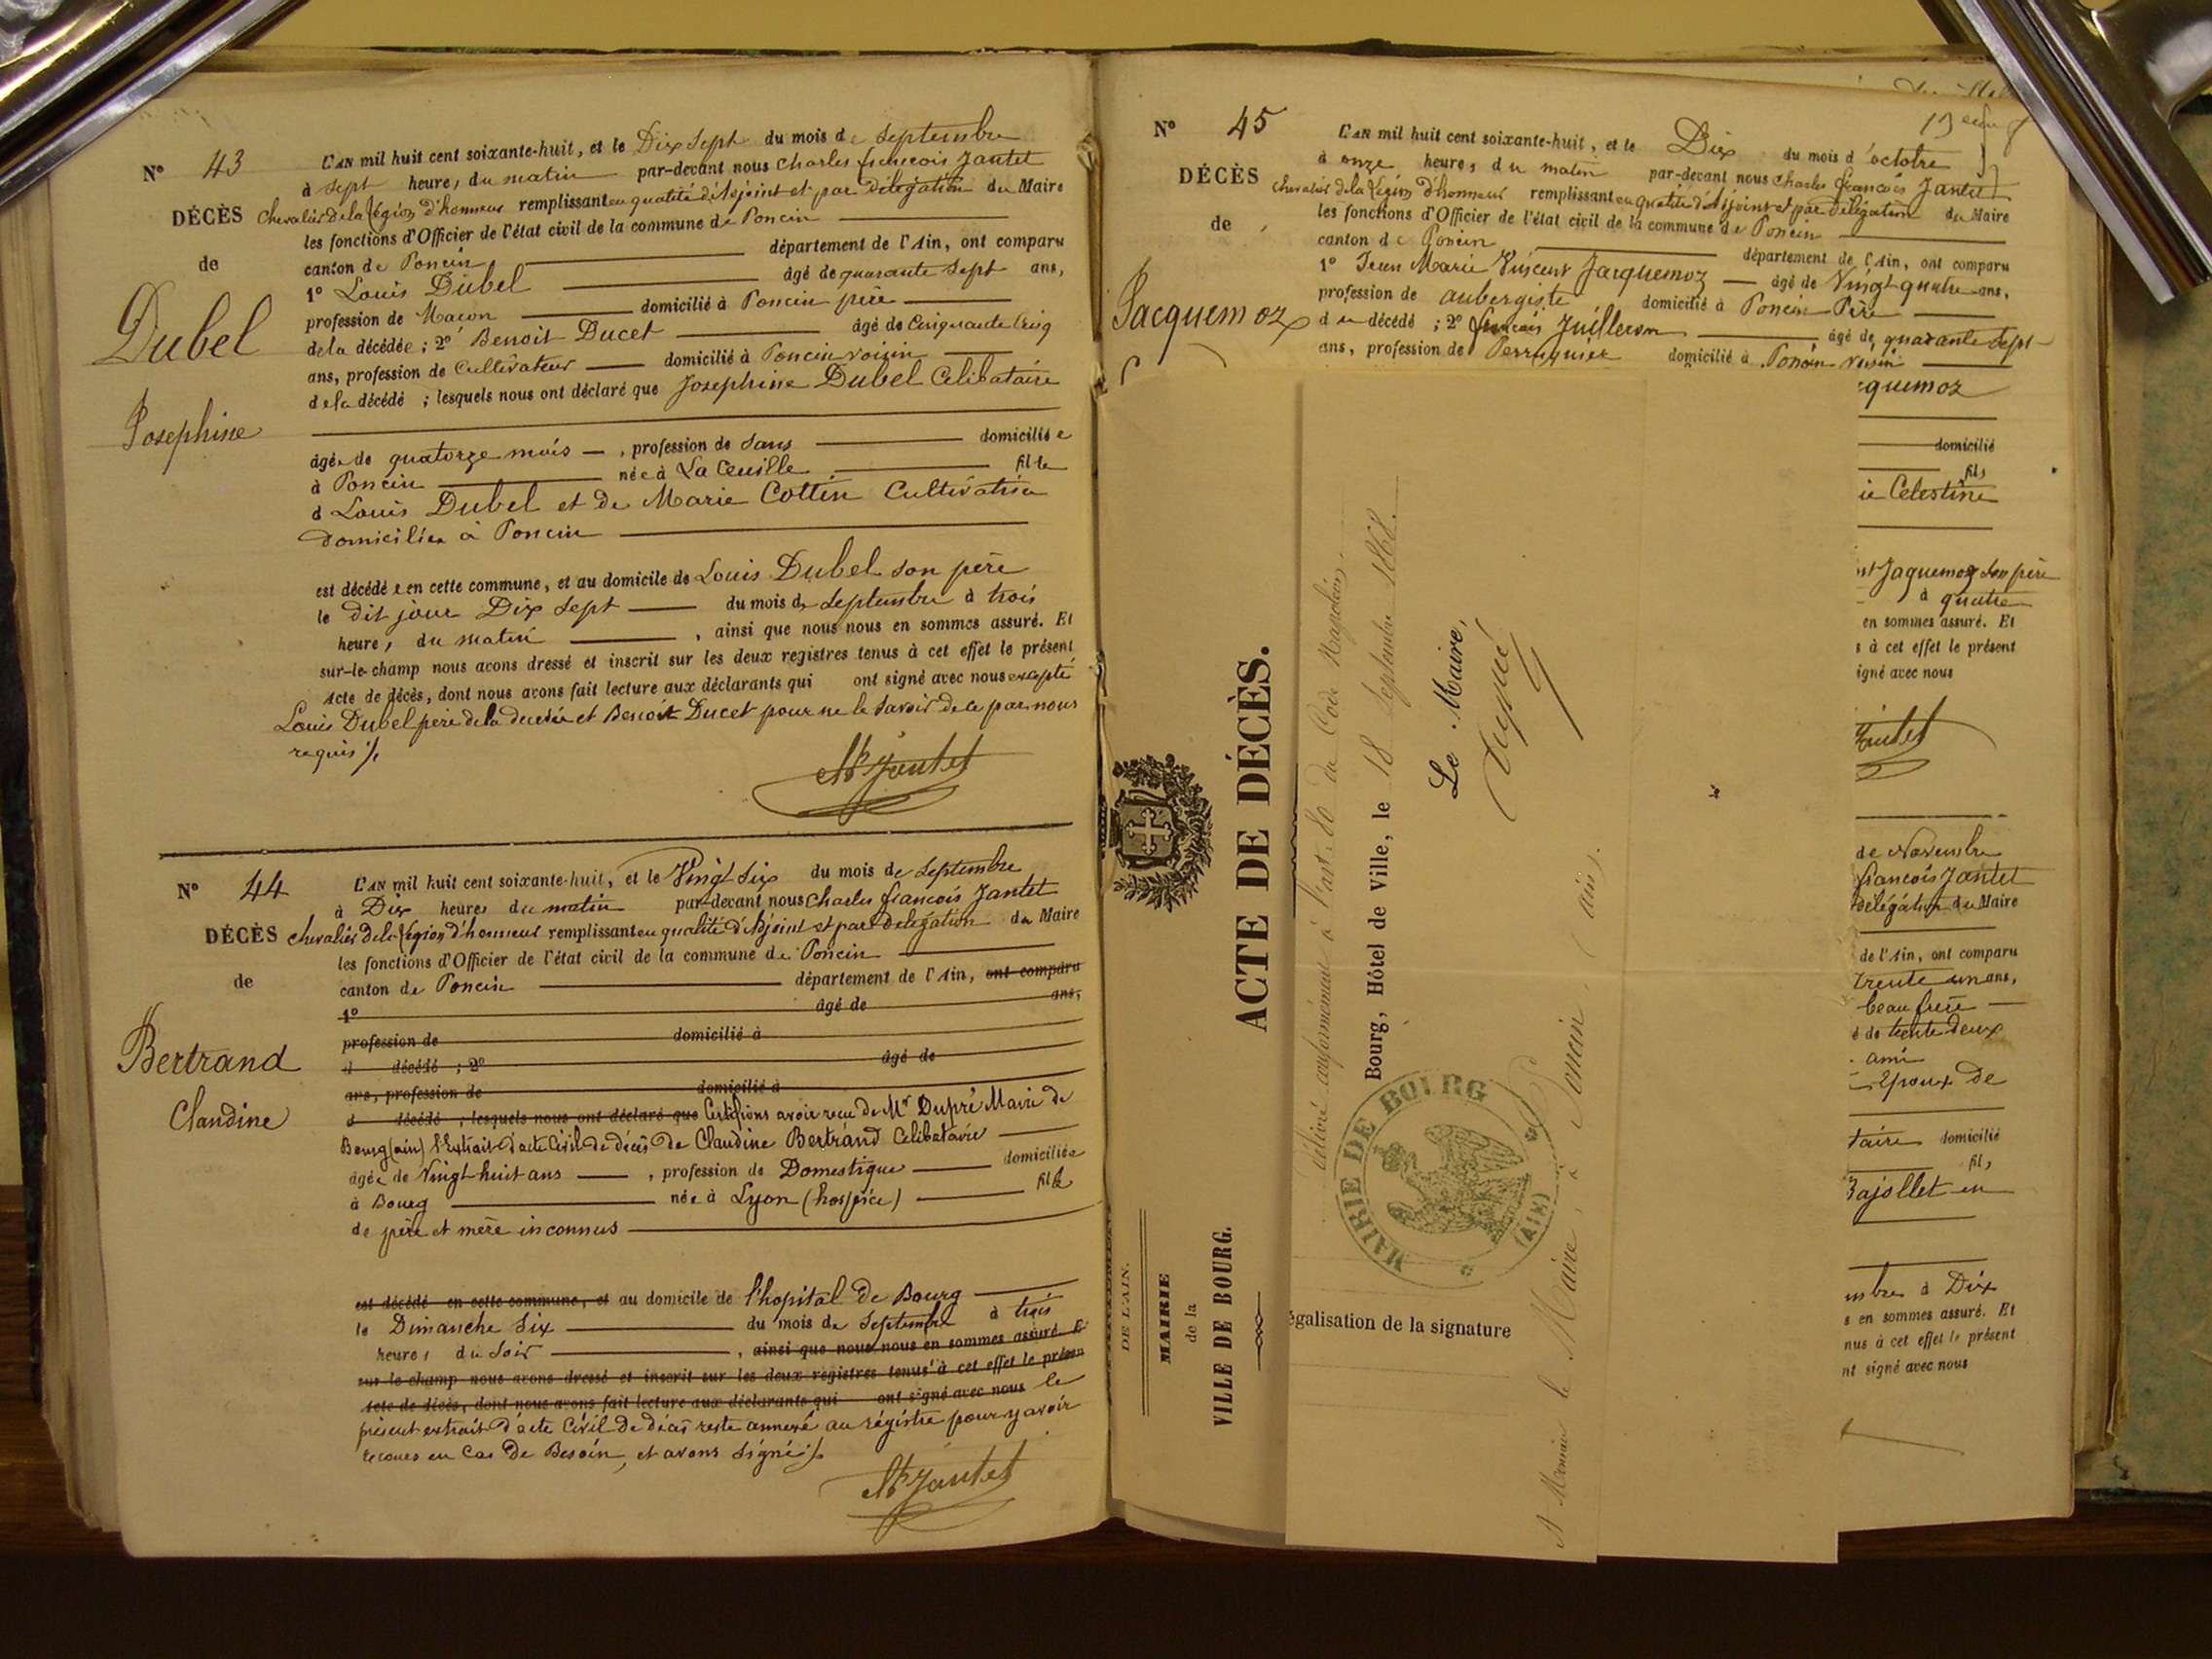 N° 43
L'AN mil huit cent soixante-huit, et le Dix Sept du mois de Septembre
à Sept heures du matin par-devant nous Charles françois Jantet
DÉCÈS Chevalier de la légion d'honneur remplissant en qualité d'Adjoint et par délégation du Maire
les fonctions d'Officier de l'état civil de la commune de Poncin
de
canton de Poncin département de l'Ain, ont comparu
1° Louis Dubel âgé de quarante sept ans,
Dubel
profession de Maçon domicilié à Poncin père
de la décédée ; 2° Benoit Ducet âgé de Cinquante Cinq
ans, profession de Cultivateur domicilié à Poncin voisin
de la décédé ; lesquels nous ont déclaré que Josephine Dubel Celibataire
Josephine
âgée de quatorze mois , profession de Sans domiciliée
à Poncin née à La Cueille fille
d Louis Dubel et de Marie Cottin
domiciliés à Poncin
est décédée en cette commune, et au domicile de Louis Dubel son père
le dit jour Dix Sept du mois de Septembre à trois
heures du matin , ainsi que nous nous en sommes assuré. Et
sur-le-champ nous avons dressé et inscrit sur les deux registres tenus à cet effet le présent
Acte de décès, dont nous avons fait lecture aux déclarants qui ont signé avec nous excepté
Louis Dubel père de la decedée et Benoit Ducet pour ne le Savoir de ce par nous
requis ./.
Jantet
N° 44
L'AN mil huit cent soixante-huit, et le Vingt Six du mois de Septembre
à Dix heures du matin par-devant nous Charles françois Jantet
DÉCÈS chevalier de la légion d'honneur remplissant en qualité d'Adjoint et par delégation du Maire
les fonctions d'Officier de l'état civil de la commune de Poncin
de
canton de Poncin département de l'Ain, ont comparu
1° âgé de ans,
Bertrand
profession de domicilié à
d décédé ; 2° âgé de
ans, profession de domicilié à
d décédé ; lesquels nous ont déclaré que Certifions avoir recu de Mr Dupré Maire de
Claudine
Bourg (ain) l'Extrait d'acte Civil de décès de Claudine Bertrand Celibataire
âgée de Vingt huit ans , profession de Domestique domiciliée
à Bourg née à Lyon (hospice) fille
de père et mère inconnus
est décédé en cette commune, et au domicile de l'hopital de Bourg
le Dimanche Six du mois de Septembre à trois
heures du Soir , ainsi que nous nous en sommes assuré. Et
sur-le-champ nous avons dressé et inscrit sur les deux registres tenus à cet effet le présen
Acte de décès, dont nous avons fait lecture aux déclarants qui ont signé avec nous le
présent extrait d'acte Civil de décès reste annexé au régistre pour y avoir
recours en Cas de Besoin, et avons Signé ./.
Jantet
N° 45
L'AN mil huit cent soixante-huit, et le Dix du mois d'octobre
à onze heures du matin par-devant nous Charles françois Jantet
DÉCÈS Chevalier de la légion d'honneur remplissant en qualité d'Adjoint et par délégation du Maire
les fonctions d'Officier de l'état civil de la commune de Poncin
de
canton de Poncin département de l'Ain, ont comparu
1° Jean Marie Vincent Jacquemoz âgé de Vingt quatre ans,
Jacquemoz
profession de aubergiste domicilié à Poncin Père
d u décédé ; 2° françois Juilleron âgé de quarante sept
ans, profession de Perruquier domicilié à Poncin Voisin
cquemoz
domicilié
fils
ie Celestine
nt Jaquemoz Son père
à quatre
en sommes assuré. Et
s à cet effet le présent
igné avec nous
Jantet
de Novembre
françois Jantet
delégation du Maire
de l'Ain, ont comparu
trente un ans,
beau frère
é de trente deux
ami
Epoux de
taire domicilié
fils
Bajollet en
mbre à Dix
s en sommes assuré. Et
nus à cet effet le présent
nt signé avec nous
DE L'AIN.
MAIRIE
de la
VILLE DE BOURG.
ACTE DE DÉCÈS.
Délivré conformément à l'art. 80 du Code Napoléon,
Bourg, Hôtel de Ville, le 18 Septembre 1868.
Le Maire,
Dupré
MAIRIE DE BOURG
(AIN)
égalisation de la signature
A Monsieur le Maire, à Poncin, (ain).